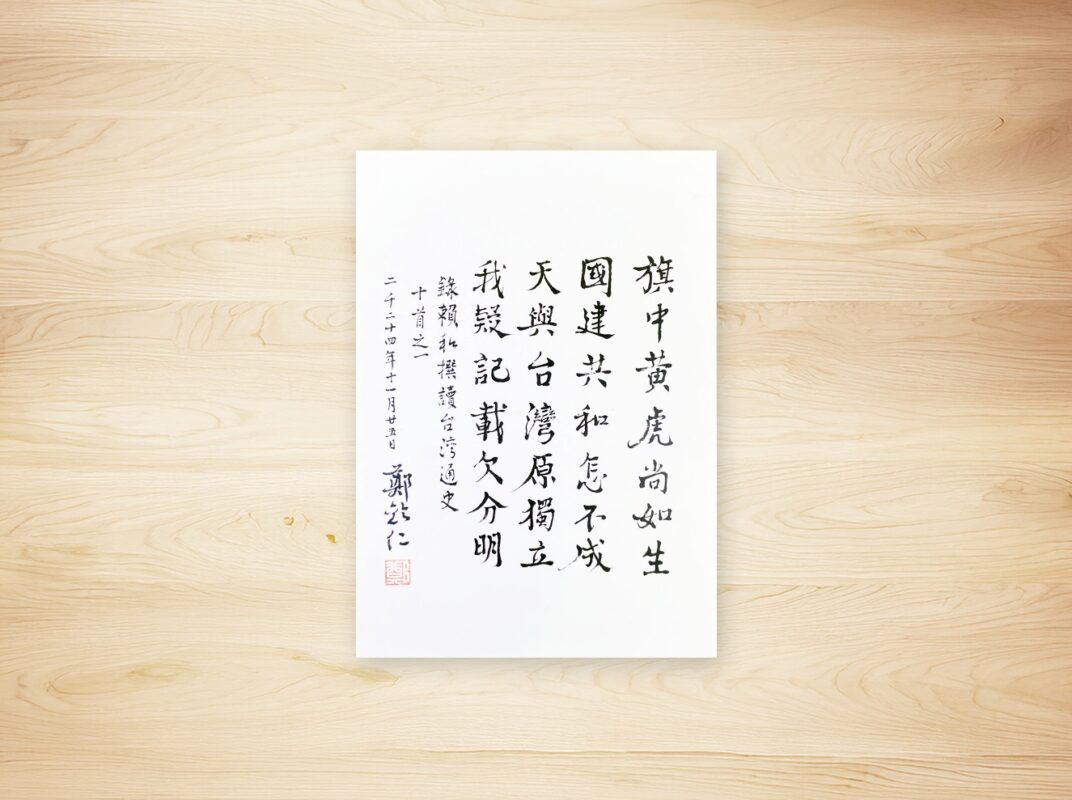 旗中黄虎尚如生
國建共和怎不成
天與台灣原獨立
我疑記載欠分明
錄賴和撰讀台湾通史
十首之一
二千二十四年十一月廿五日 鄭欽仁